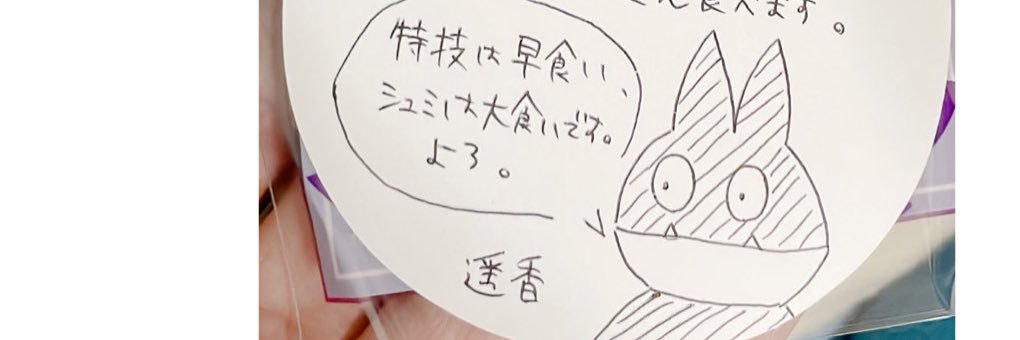 食べます。
特技は早食い、
シュミは大食いです。
よろ。
遥香